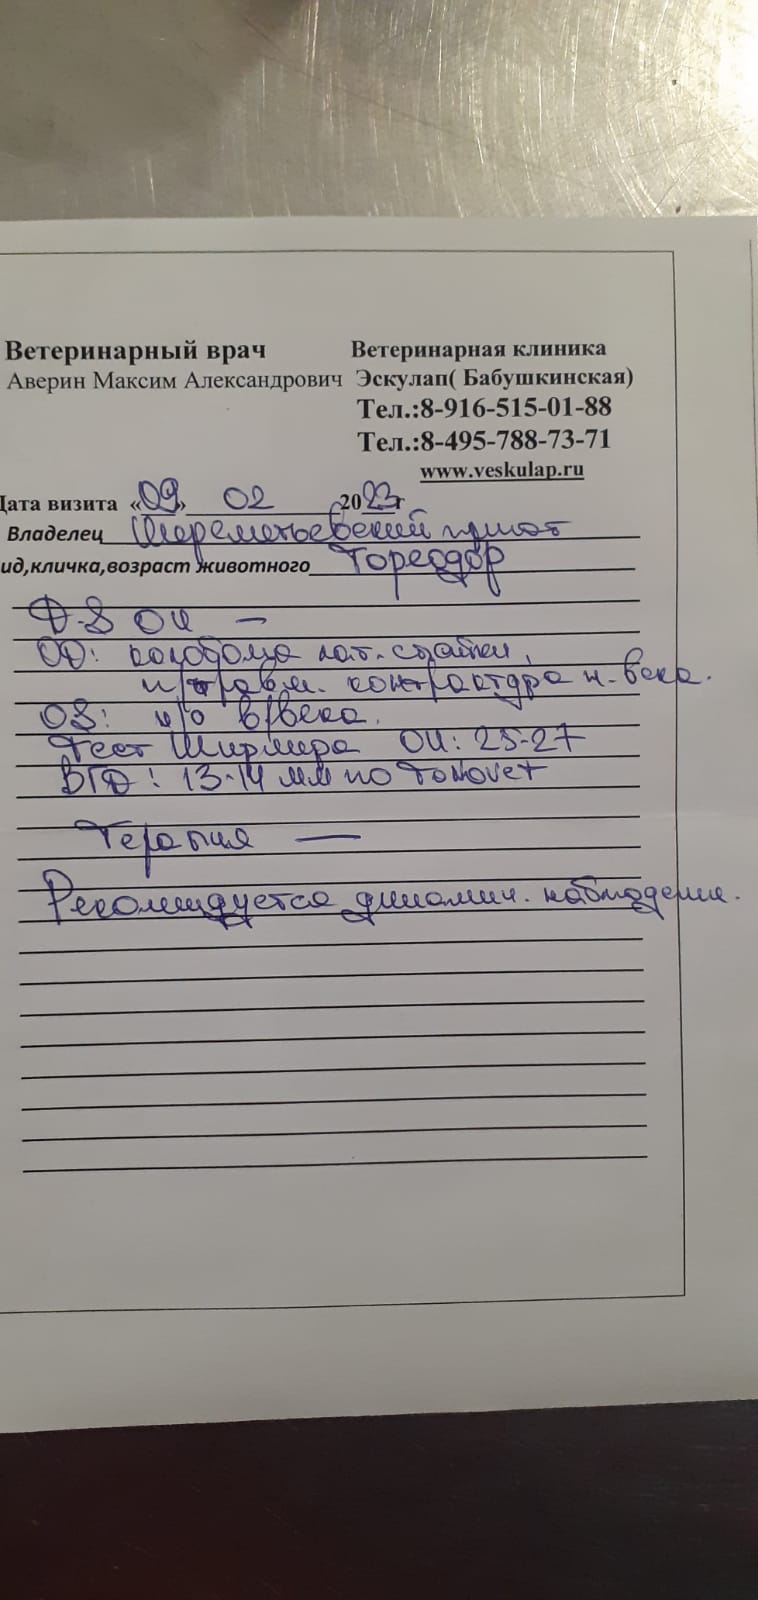 Ветеринарный врач
Ветеринарная клиника
Аверин Максим Александрович
Эскулап( Бабушкинская)
Тел.:8-916-515-01-88
Тел.:8-495-788-73-71
www.veskulap.ru
Дата визита «09» 02 2023г
Владелец Шереметьевский приют
ид,кличка,возраст животного Тореодор
D-S OU —
OD: колобома лат. спайки,
травм. контрактура н. века.
OS: в/века.
Тест Ширмера OU: 25-27
ВГД: 13-14 мм по Tonovet
Терапия —
Рекомендуется динамич. наблюдение.